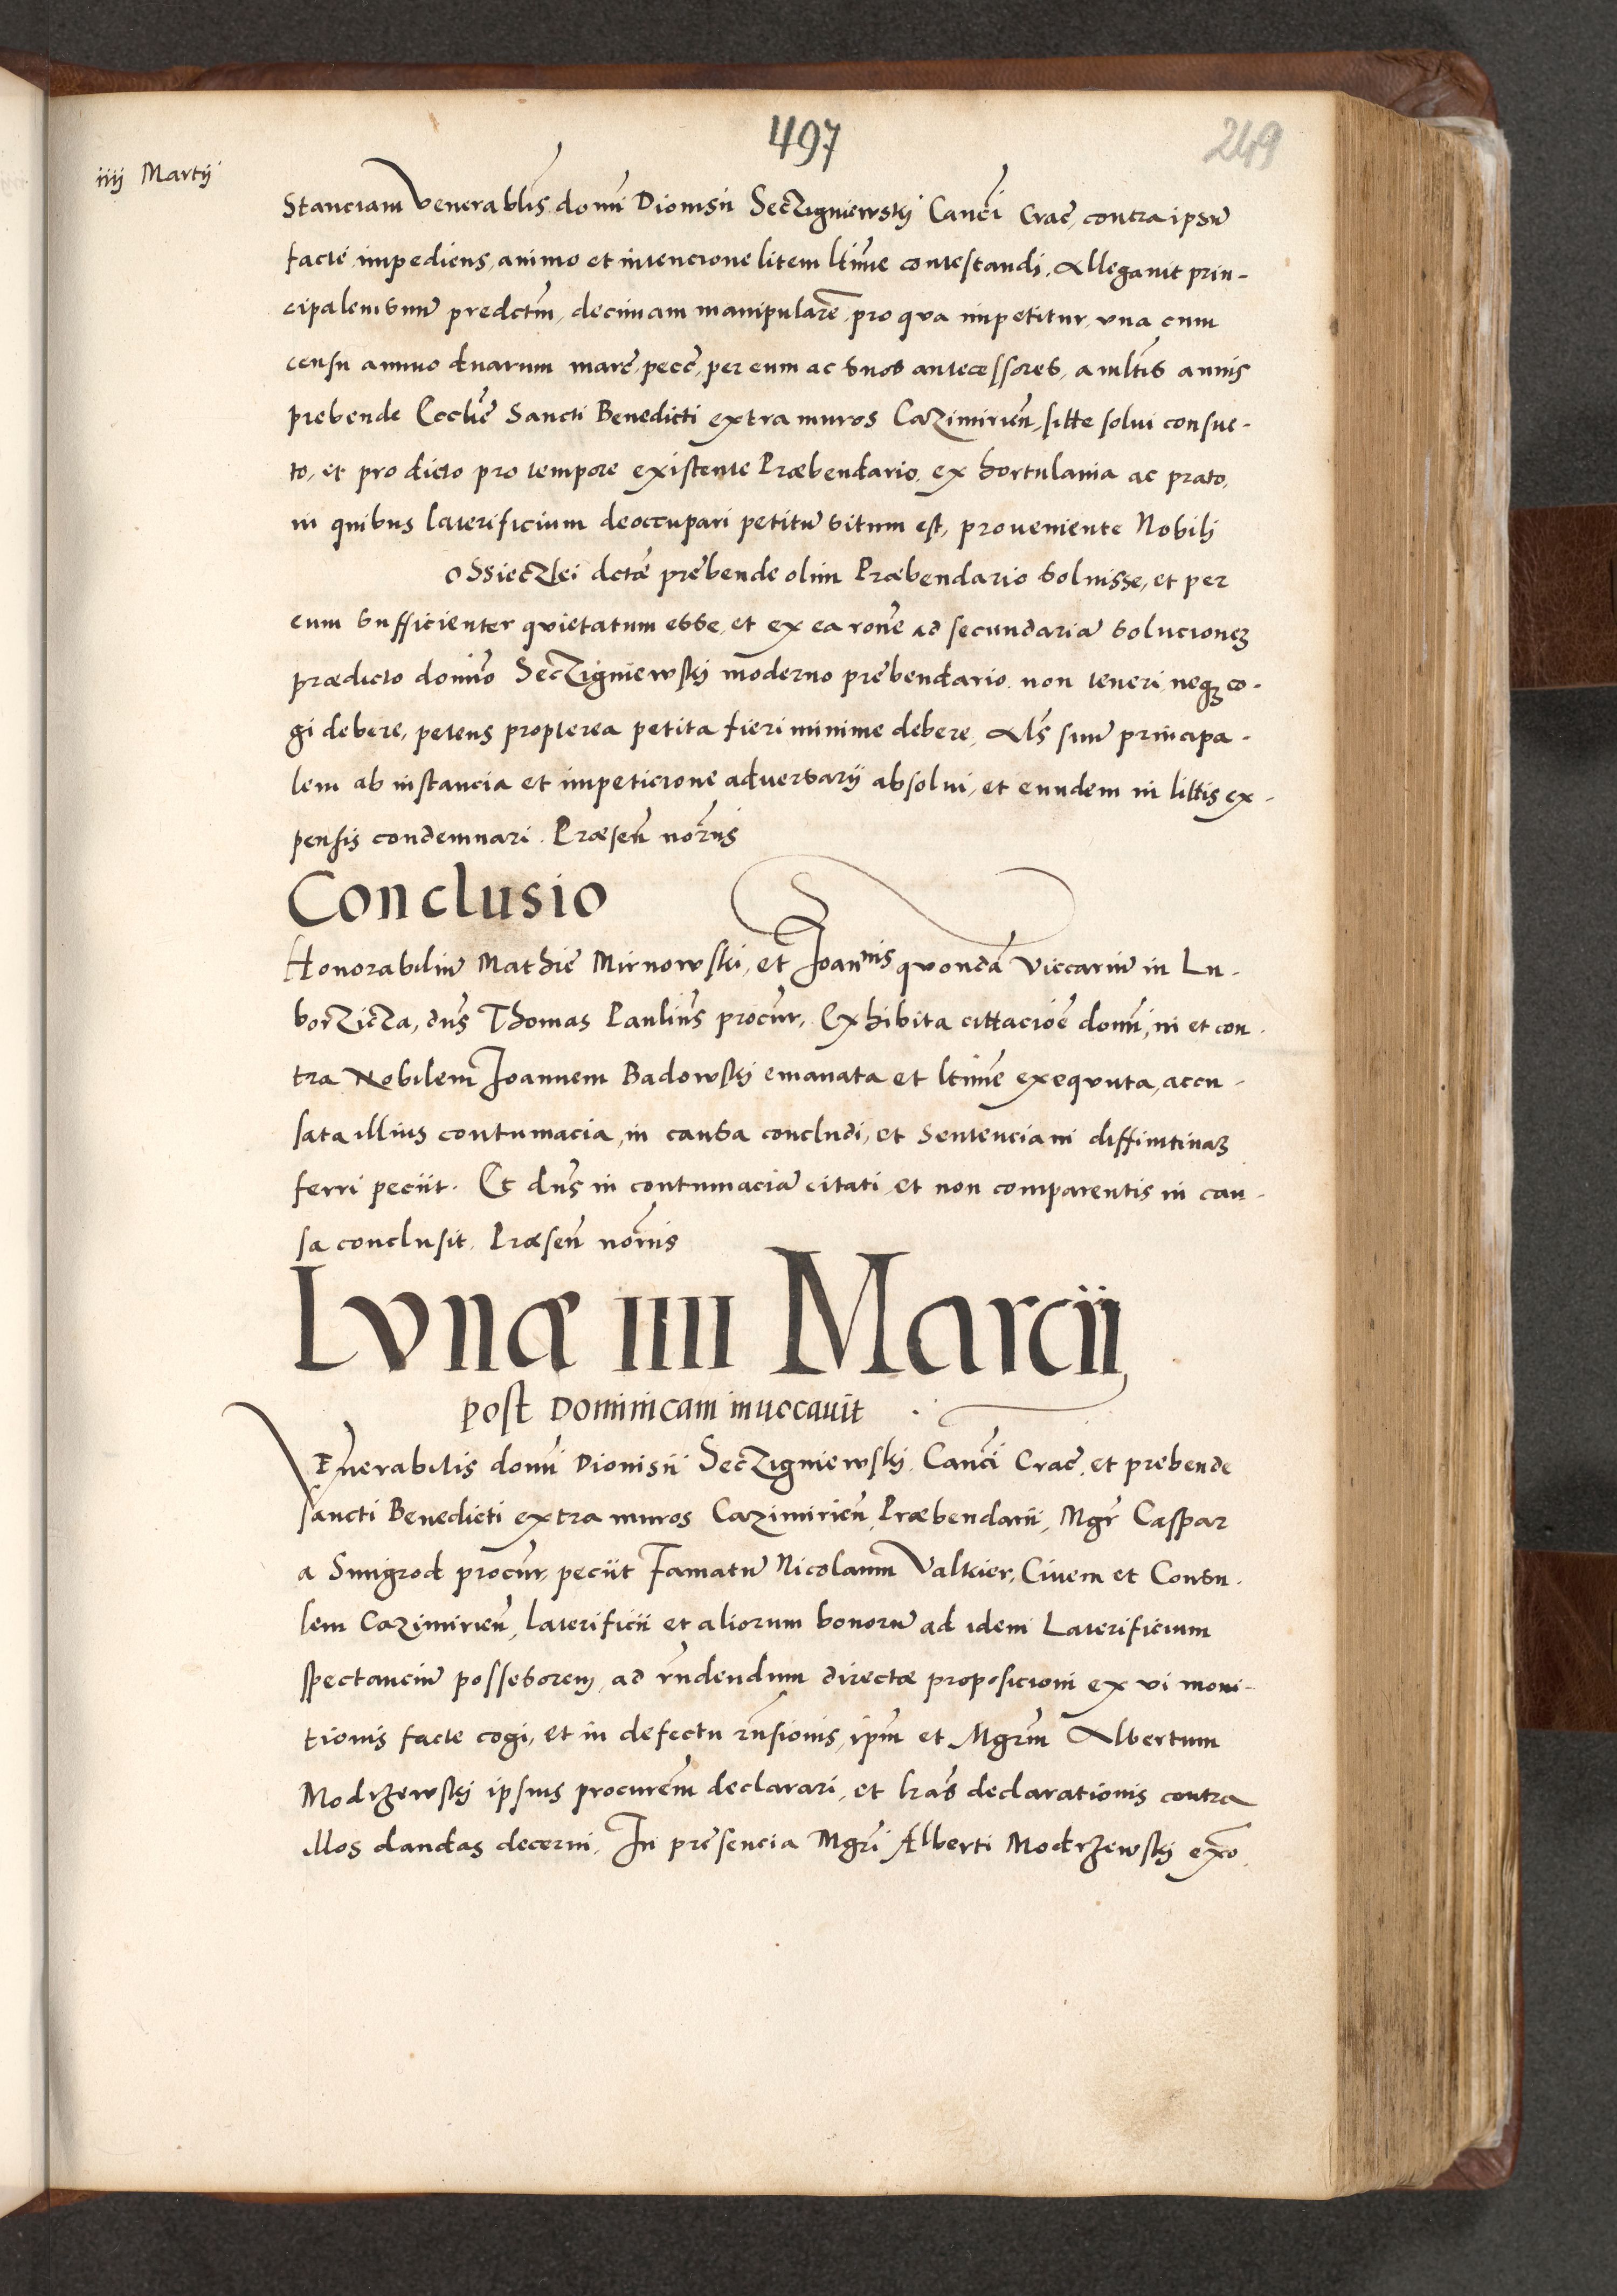 497
249
iiij Martij
Stanciam Venerablis domi Dionisii SecZigniewskj Canci Crac, contra ipsu
facte impediens, animo et intencione litem ltime contestandj, Allegauit prin-
cipalem suu predctm, decimam manipulare, pro qua impetitur, vna cum
censu annuo duarum marc, pecc, per eum ac suos antecessores, a mltis annis
prebende Eccliæ Sancti Benedicti extra muros Cazimirien, silte solui consue-
to, et pro dicto pro tempore existente Præbendario, ex hortulania ac prato,
in quibus laterificium deoccupari petitu situm est, proueniente Nobili
OssiecZkei dcte prebende olim Præbendario soluisse, et per
eum sufficienter quietatum esse, et ex ea rone ad secundaria solucionez
prædicto domino SecZigniewskj moderno prebendario, non teneri neqz co-
gi debere, petens propterea petita fieri minime debere, Als suu principa-
lem ab instancia et impeticione aduersarij absolui, et eundem in littis ex-
pensis condemnari. Præsen notriis
Conclusio
Honorabiliu Mathie Mirnowski, et Joannis quonda Viccariu in Lu-
borZicZa, dns Thomas Paulius procur, Exhibita cittacioe domi, in et con-
tra Nobilem Joannem Badowskj emanata et ltime exequuta, accu-
sata illius contumacia, in causa concludi, et Sentenciam diffinitiuaz
ferri peciit. Et dns in contumacia citati et non comparentis in cau-
sa conclusit. Præsen notriis
Lvnæ IIII Marcii
post Dominicam inuocauit
Venerabilis domi Dionisii SecZigniewskj Canci Crac, et prebende
Sancti Benedicti extra muros Cazimirien Præbendarii, Mgr Caspar
a Smigrod procur, peciit Famatu Nicolaum Valkier, Ciuem et Consu-
lem Cazimirien, laterificii et aliorum bonoru ad idem Laterificium
spectanciu possesorem, ad rndendum directæ proposicioni ex vi moni-
tionis facte cogi, et in defectu rnsionis, ipm et Mgrm Albertum
Modrzewskj ipsius procurem declarari, et lras declarationis contra
illos dandas decerni. In presencia Mgri Alberti Modrzewskj exo